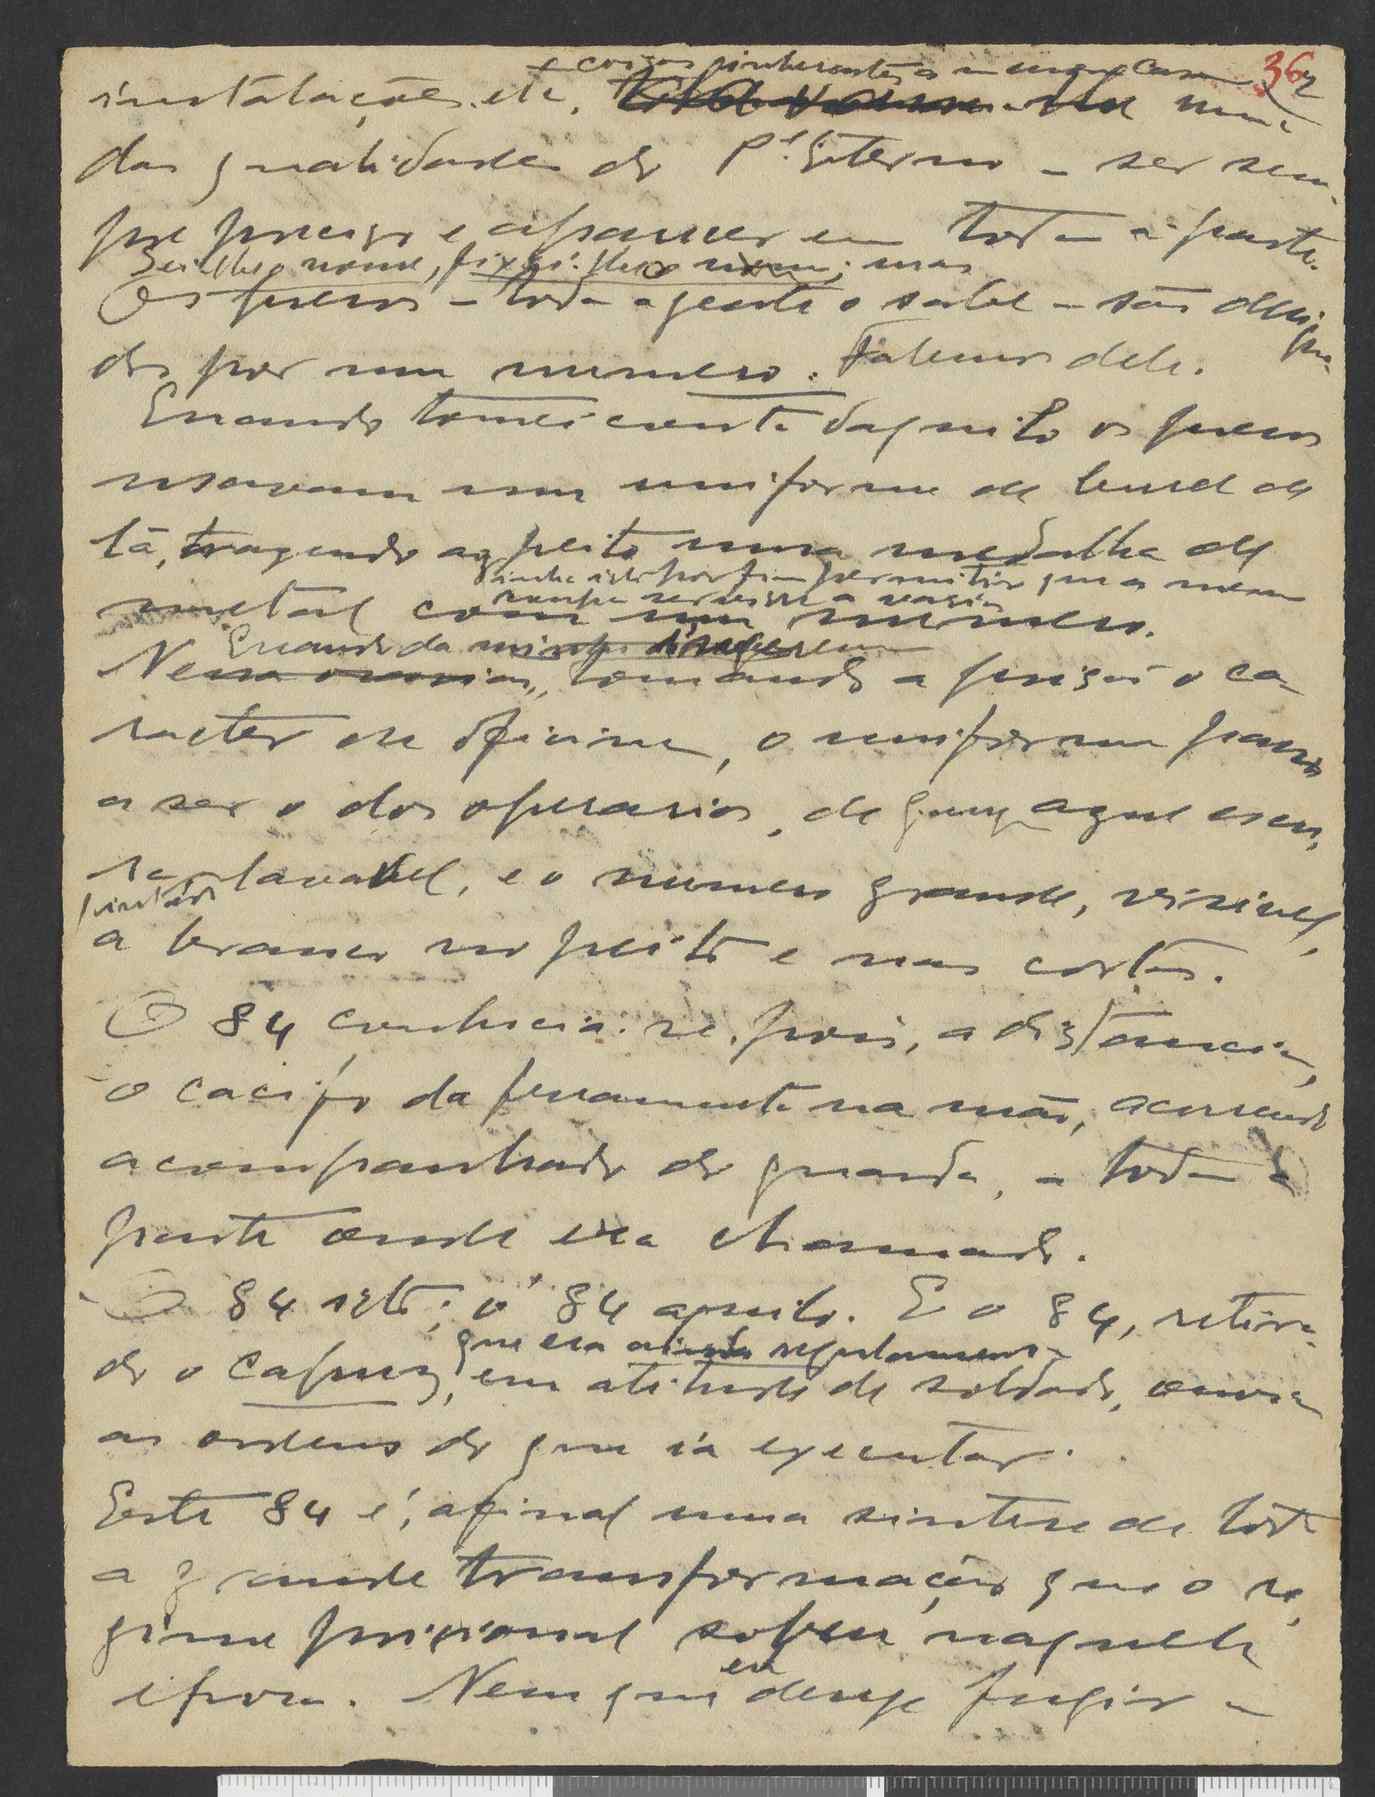 362
e coisas inherentes a uma casa
instalações, etc. uma
das qualidades do P.e Eterno – ser sem-
pre preciso e aparecer em toda a parte.
Sei-lhe o nome, fixei-lhe o nome; mas
Os presos – toda a gente o sabe – são designa-
dos por um numero. Falemos dele.
Quando tomei conta daquilo os presos
usavam um uniforme de burel de
lã, trazendo ao peito uma medalha de
metal com um numero.
Quando da minha
Nessa ocasião, tomando a prisão o ca-
racter de oficina, o uniforme passou
a ser o dos operarios, de ganga azul escu-
ra lavavel, e o numero grande, visivel,
pintado
a branco no peito e nas costas.
O 84 conhecia-se, pois, a distancia,
o cacifo da ferramenta na mão, acorrendo
acompanhado do guarda, a toda a
parte onde era chamado.
O 84 isto; o 84 aquilo. E o 84, retira-
que era ainda regulamentar
do o capuz, em atitude de soldado, ouvia
as ordens do que ia executar.
Este 84 é, afinal uma sintese de toda
a grande transformação que o re-
gime prisional sofreu naquela
epoca. Nem que eu deseje fugir a